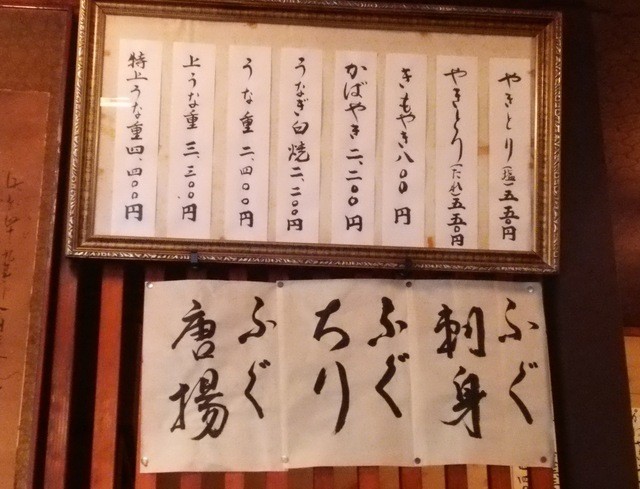 やきとり(塩)五五〇円
やきとり(たれ)五五〇円
きもやき八〇〇円
かばやき二、二〇〇円
うなぎ白焼二、二〇〇円
うな重二、四〇〇円
上うな重三、三〇〇円
特上うな重四、四〇〇円
ふぐ
刺身
ふぐ
ちり
ふぐ
唐揚